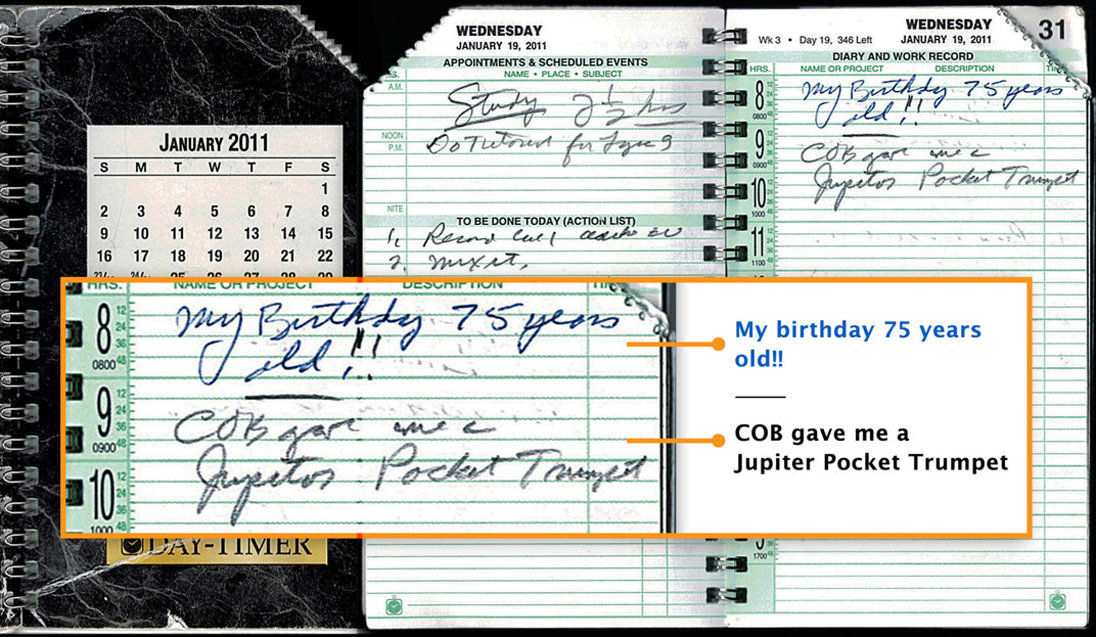 JANUARY 2011
S M T W T F S
1
2 3 4 5 6 7 8
9 10 11 12 13 14 15
16 17 18 19 20 21 22
23/30 24/31 25 26 27 28 29
DAY-TIMER
WEDNESDAY
JANUARY 19, 2011
APPOINTMENTS & SCHEDULED EVENTS
NAME • PLACE • SUBJECT
A.M.
Study 2½ hrs
NOON
P.M.
Do Tutorial for
NITE
TO BE DONE TODAY (ACTION LIST)
1, Record
2.
WEDNESDAY
31
Wk 3 • Day 19, 346 Left
JANUARY 19, 2011
DIARY AND WORK RECORD
HRS. NAME OR PROJECT DESCRIPTION
8 My Birthday 75 years
0800 old!!
9 COB gave me a
0900
10 Jupitor Pocket Trumpet
1000
11
1100
HRS. NAME OR PROJECT DESCRIPTION
8 12 24 36 48 My Birthday 75 years
0800 old!!
9 12 24 36 48 COB gave me a
0900
10 12 24 36 48 Jupitor Pocket Trumpet
1000
My birthday 75 years
old!!
COB gave me a
Jupiter Pocket Trumpet
5
1700